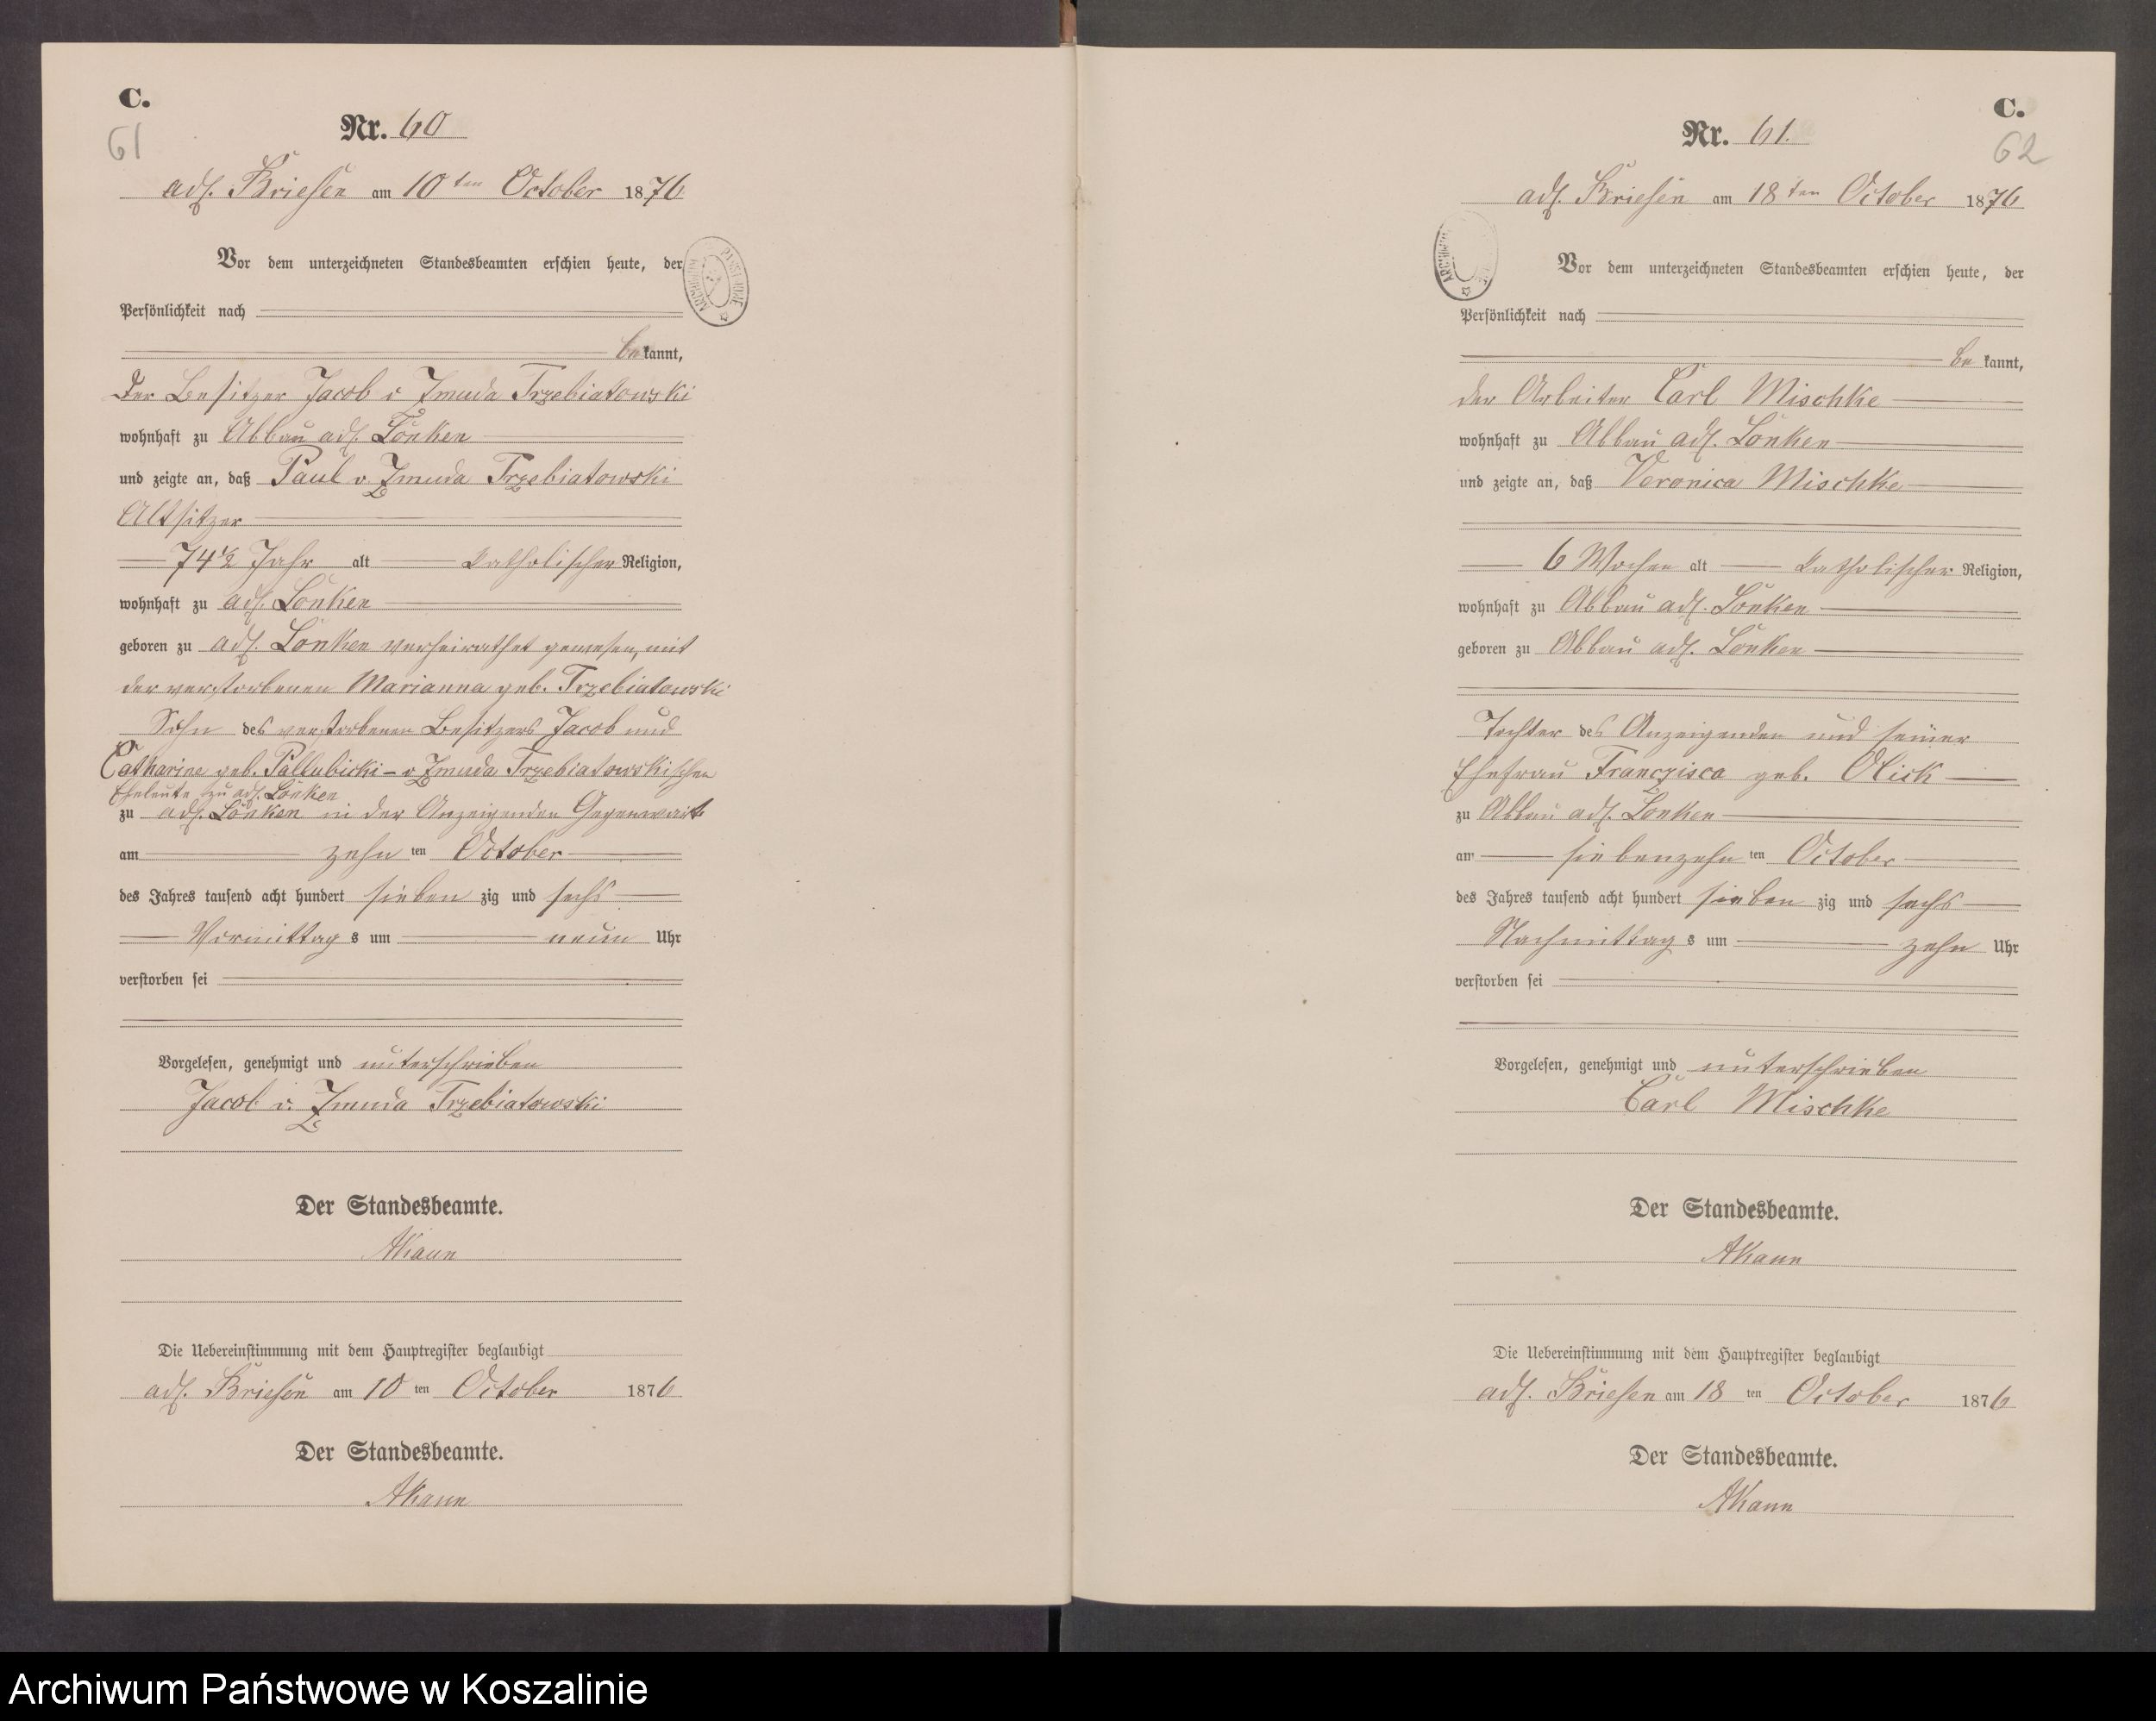 C.
61
Nr. 60
adl. Briesen am 10ten October 1876
Vor dem unterzeichneten Standesbeamten erschien heute, der
Persönlichkeit nach
bekannt,
der Besitzer Jacob v Zmuda Trzebiatowski
wohnhaft zu Abbau adl. Lonken
und zeigte an, daß Paul v. Zmuda Trzebiatowski
Altsitzer
74½ Jahr alt katholischer Religion,
wohnhaft zu adl. Lonken
geboren zu adl. Lonken verheirathet gewesen, mit
der verstorbenen Marianna geb. Trzebiatowski
Sohn des verstorbenen Besitzers Jacob und
Catharine geb. Pallubicki - v Zmuda Trzebiatowskischen
Eheleute zu adl. Lonken
zu adl. Lonken in der Anzeigenden Gegenwart
am zehn ten October
des Jahres tausend acht hundert sieben zig und sechs
Vormittag s um neun Uhr
verstorben sei
Vorgelesen, genehmigt und unterschrieben
Jacob v. Zmuda Trzebiatowski
Der Standesbeamte.
AKaun
Die Uebereinstimmung mit dem Hauptregister beglaubigt
adl. Briesen am 10 ten October 1876
Der Standesbeamte.
AKaun
C.
62
Nr. 61.
adl. Briesen am 18ten October 1876
ARCHIWUM
Vor dem unterzeichneten Standesbeamten erschien heute, der
Persönlichkeit nach
be kannt,
der Arbeiter Carl Mischke
wohnhaft zu Abbau adl. Lonken
und zeigte an, daß Veronica Mischke
6 Wochen alt katholischer Religion,
wohnhaft zu Abbau adl. Lonken
geboren zu Abbau adl. Lonken
Tochter des Anzeigenden und seiner
Ehefrau Franczisca geb. Olick
zu Abbau adl. Lonken
am siebenzehn ten October
des Jahres tausend acht hundert sieben zig und sechs
Nachmittag s um zehn Uhr
verstorben sei
Vorgelesen, genehmigt und unterschrieben
Carl Mischke
Der Standesbeamte.
AKaun
Die Uebereinstimmung mit dem Hauptregister beglaubigt
adl. Briesen am 18 ten October 1876
Der Standesbeamte.
AKaun
Archiwum Państwowe w Koszalinie